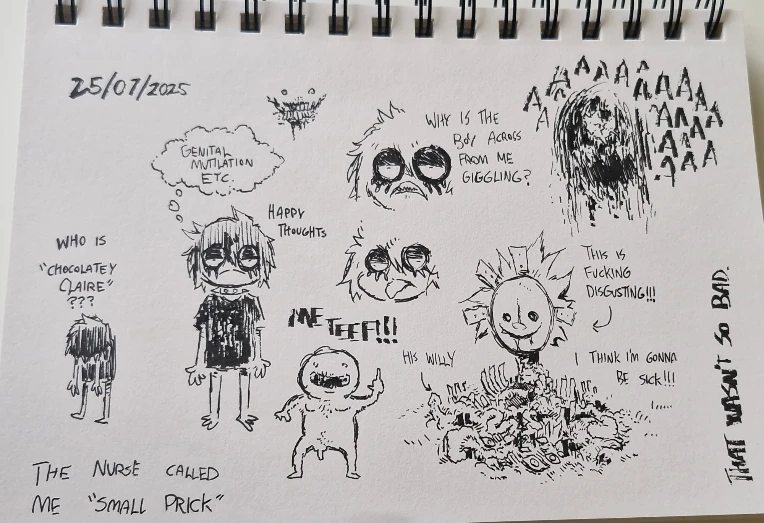 25/07/2025
GENITAL
MUTILATION
ETC.
HAPPY
THOUGHTS
WHY IS THE
BOY ACROSS
FROM ME
GIGGLING?
AAAAAAAAAAAAAAAAAAAA
WHO IS
"CHOCOLATEY
CLAIRE"
???
ME TEEF!!!
HIS WILLY
THIS IS
FUCKING
DISGUSTING!!!
I THINK I'M GONNA
BE SICK!!!
THAT WASN'T SO BAD.
THE NURSE CALLED
ME "SMALL PRICK"